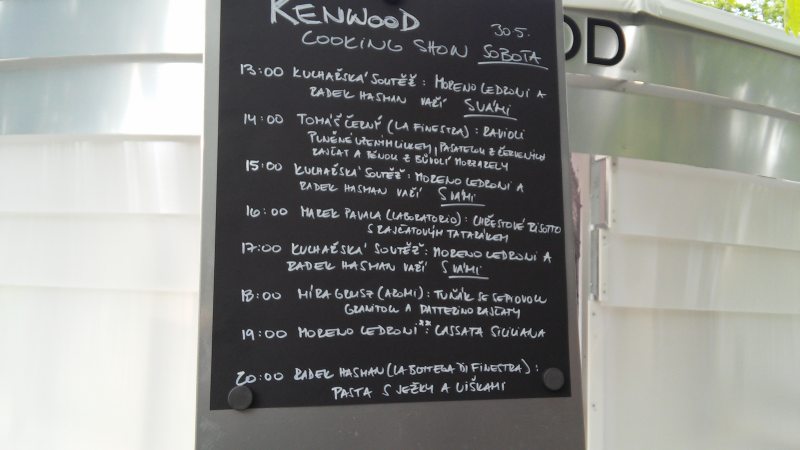 KENWOOD
30.5.
COOKING SHOW SOBOTA
OD
13:00 KUCHAŘSKÁ SOUTĚŽ: MORENO LEDRONI A
RADEK HASMAN VAŘÍ S VÁMI
14:00 TOMÁŠ ČERNÝ (LA FINESTRA): RAVIOLI
PLNĚNÉ UZENÝM LILKEM, PASATOU Z ČERVENÝCH
RAJČAT A PĚNOU Z BŮVOLÍ MOZZARELY
15:00 KUCHAŘSKÁ SOUTĚŽ: MORENO LEDRONI A
RADEK HASMAN VAŘÍ S VÁMI
16:00 MAREK PAVALA (LABORATORIO): CHŘESTOVÉ RISOTTO
S RAJČATOVÝM TATARÁKEM
17:00 KUCHAŘSKÁ SOUTĚŽ: MORENO LEDRONI A
RADEK HASMAN VAŘÍ S VÁMI
18:00 MÍRA GRUSZ (AROMI): TUŇÁK SE SEPIOVOU
GRANITOU A DATTERINO RAJČATY
19:00 MORENO LEDRONI**: CASSATA SICILIANA
20:00 RADEK HASMAN (LA BOTTEGA DI FINESTRA):
PASTA S JEŽKY A LIŠKAMI